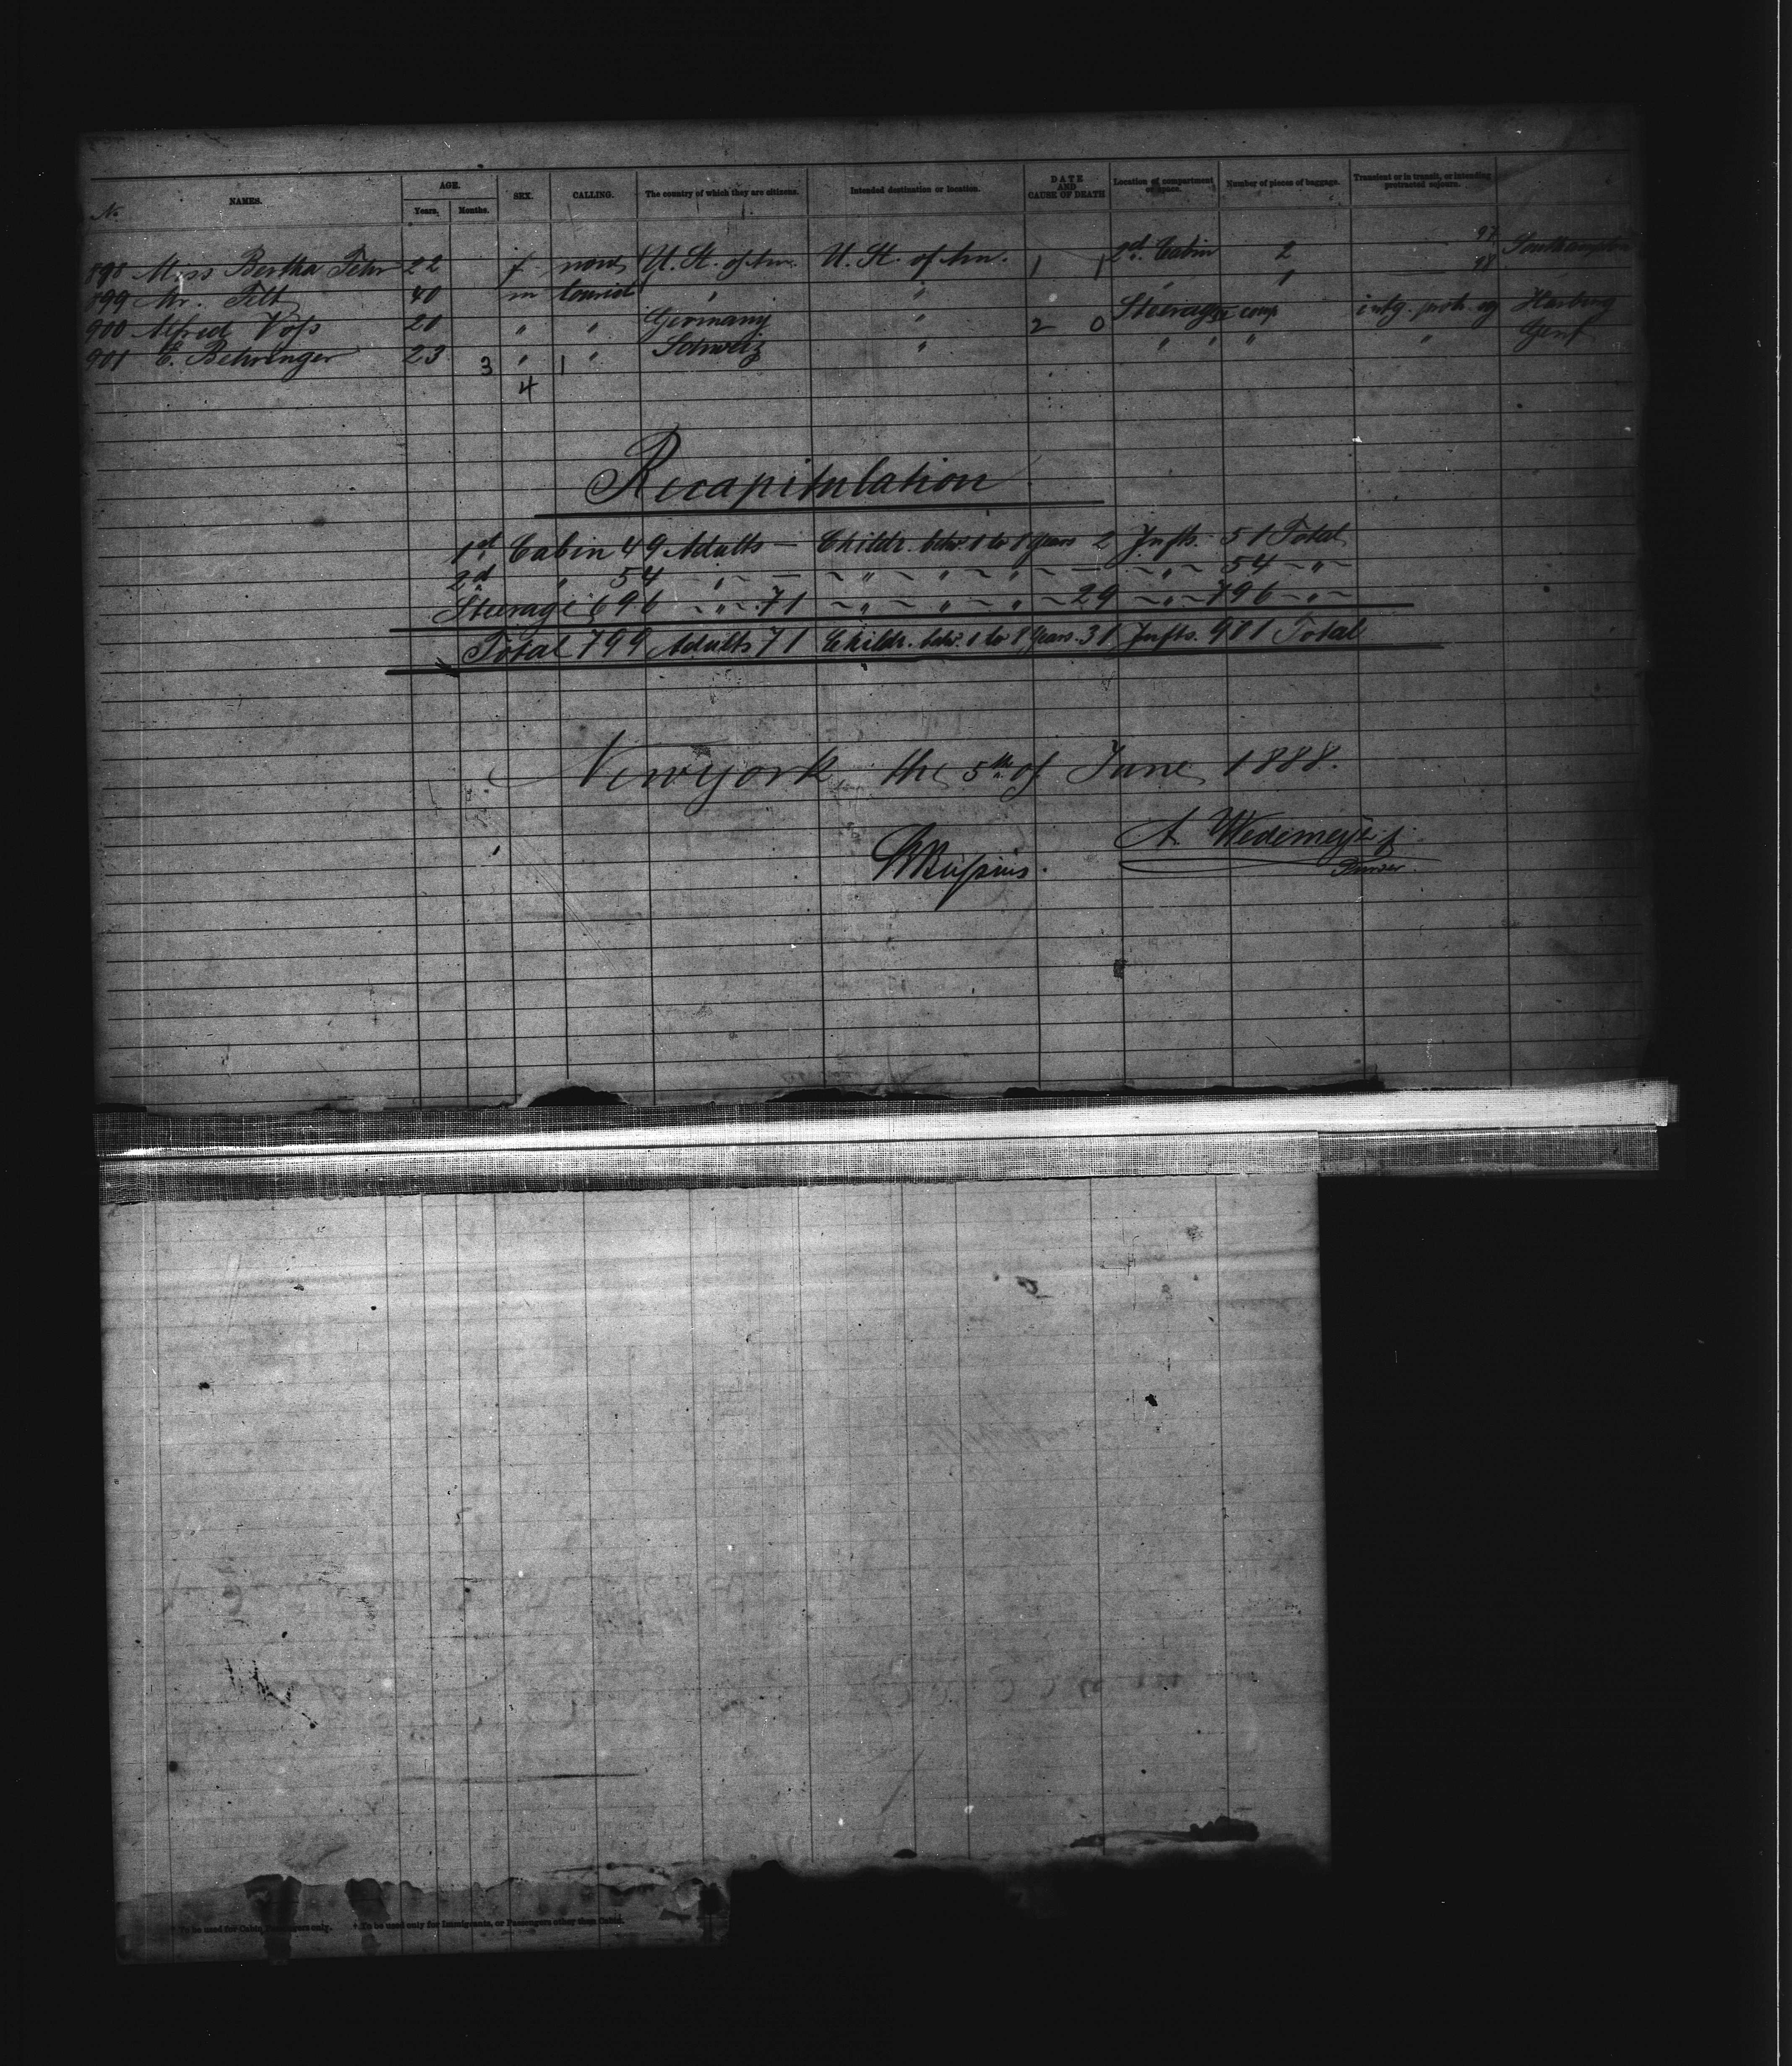 No. NAMES. AGE. Years. Months. SEX. CALLING. The country of which they are citizens. Intended destination or location. DATE AND CAUSE OF DEATH Location of compartment or space. Number of pieces of baggage. Transient or in transit, or intending protracted sojourn.
898 Miss Bertha Fehr 22 f none U. St. of Am. U. St. of Am. 1 1 2d. Cabin 2 97 Southampton
899 Mr. Filt 40 m tourist " " " 1 98
900 Alfred Voss 20 " " Germany " 2 0 Steerage comp intg. protr. Harburg
901 C. Behringer 23 " " Schweiz " " " " " Genf
3 1
4
Recapitulation
1st Cabin 49 Adults — Childr. betw. 1 to 8 years 2 Infts. 51 Total
2d " 54 " — " " " — " 54 "
Steerage 696 " 71 " " " 29 " 796 "
Total 799 Adults 71 Childr. betw. 1 to 8 Years 31 Infts. 901 Total
Newyork, the 5th of June 1888.
A. Wedemeyer
Purser
* To be used for Cabin Passengers only. † To be used only for Immigrants, or Passengers other than Cabin.